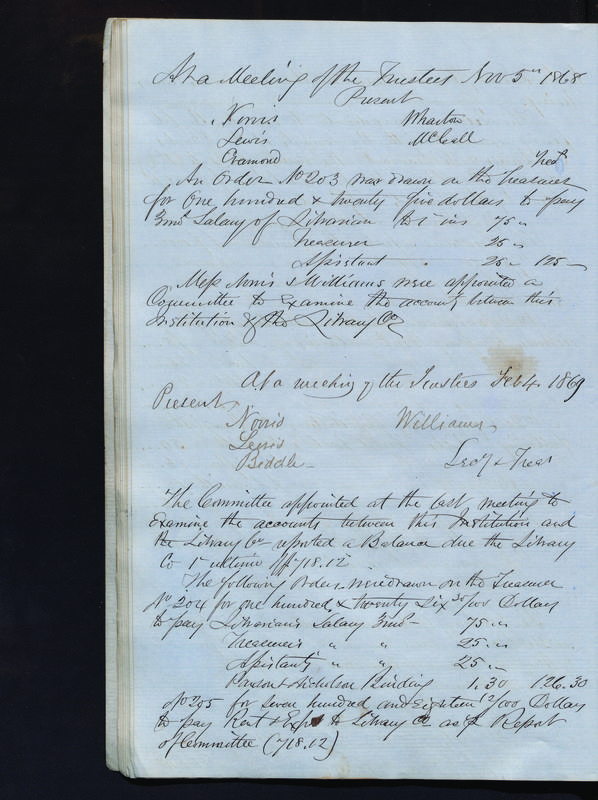 At a Meeting of the Trustees Nov 5th 1868
Present
Norris Wharton
Lewis McCall
Cramond Treas
An Order No 203 was drawn on the Treasurer
for One hundred & twenty five dollars to pay
3 mos Salary of Librarian to 1 ins 75 "
Treasurer 25 "
Assistant 25 " 125 —
Mess Norris & Williams were appointed a
Committee to Examine the accounts between this
Institution & the Library Co
At a meeting of the Trustees Feb 4 1869
Present
Norris Williams
Lewis
Biddle Secy & Treas
The Committee appointed at the last meeting to
Examine the accounts between this Institution and
the Library Co reported a Balance due the Library
Co 1st ultimo of 718.12
The following Orders were drawn on the Treasurer
No 204 for one hundred & twenty Six 30/100 Dollars
to pay Librarians Salary 3 mos — 75 "
Treasurers " " 25 "
Assistants " " 25 "
Pawson & Nicholson Binding 1.30 126.30
No 205 for Seven hundred and Eighteen 12/100 Dollars
to pay Rent & Exps to Library Co as p Report
of Committee (718.12)